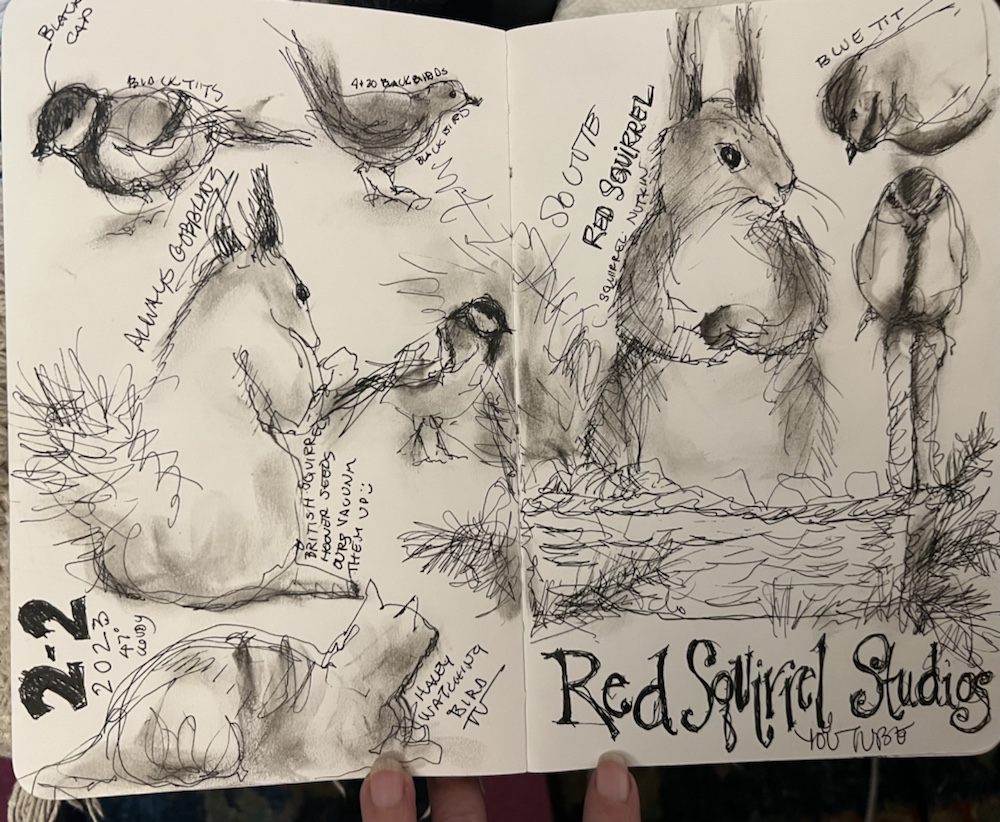 BLACK
CAP
BLACK TITS
4+20 BLACKBIRDS
BLACK BIRD
ALWAYS GOBBLING
BRITISH SQUIRREL
HOOVER SEEDS
OURS VACUUM
THEM UP :)
2-2
2023
47°
CLOUDY
HALEY
WATCHING
BIRD
TV
SO CUTE
RED SQUIRREL
SQUIRREL NUTKIN
BLUE TIT
Red Squirrel Studios
YOU TUBE